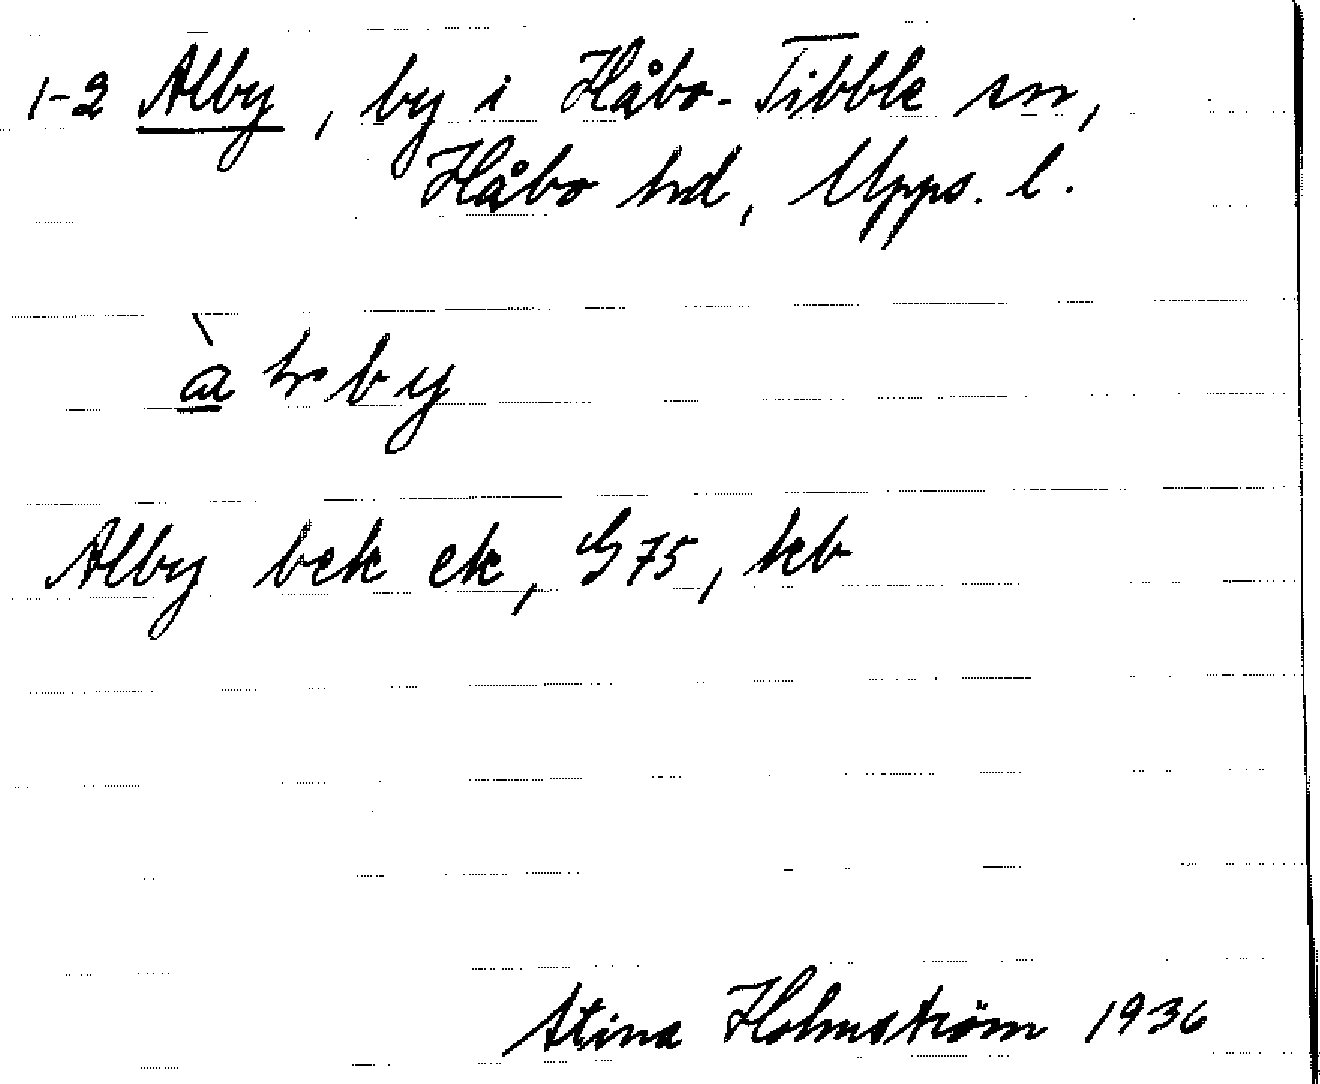 1-2 Alby, by i Håbo-Tibble sn,
Håbo hd, Upps. l.
Alby bek ek, G 75, kb
Stina Holmström 1936